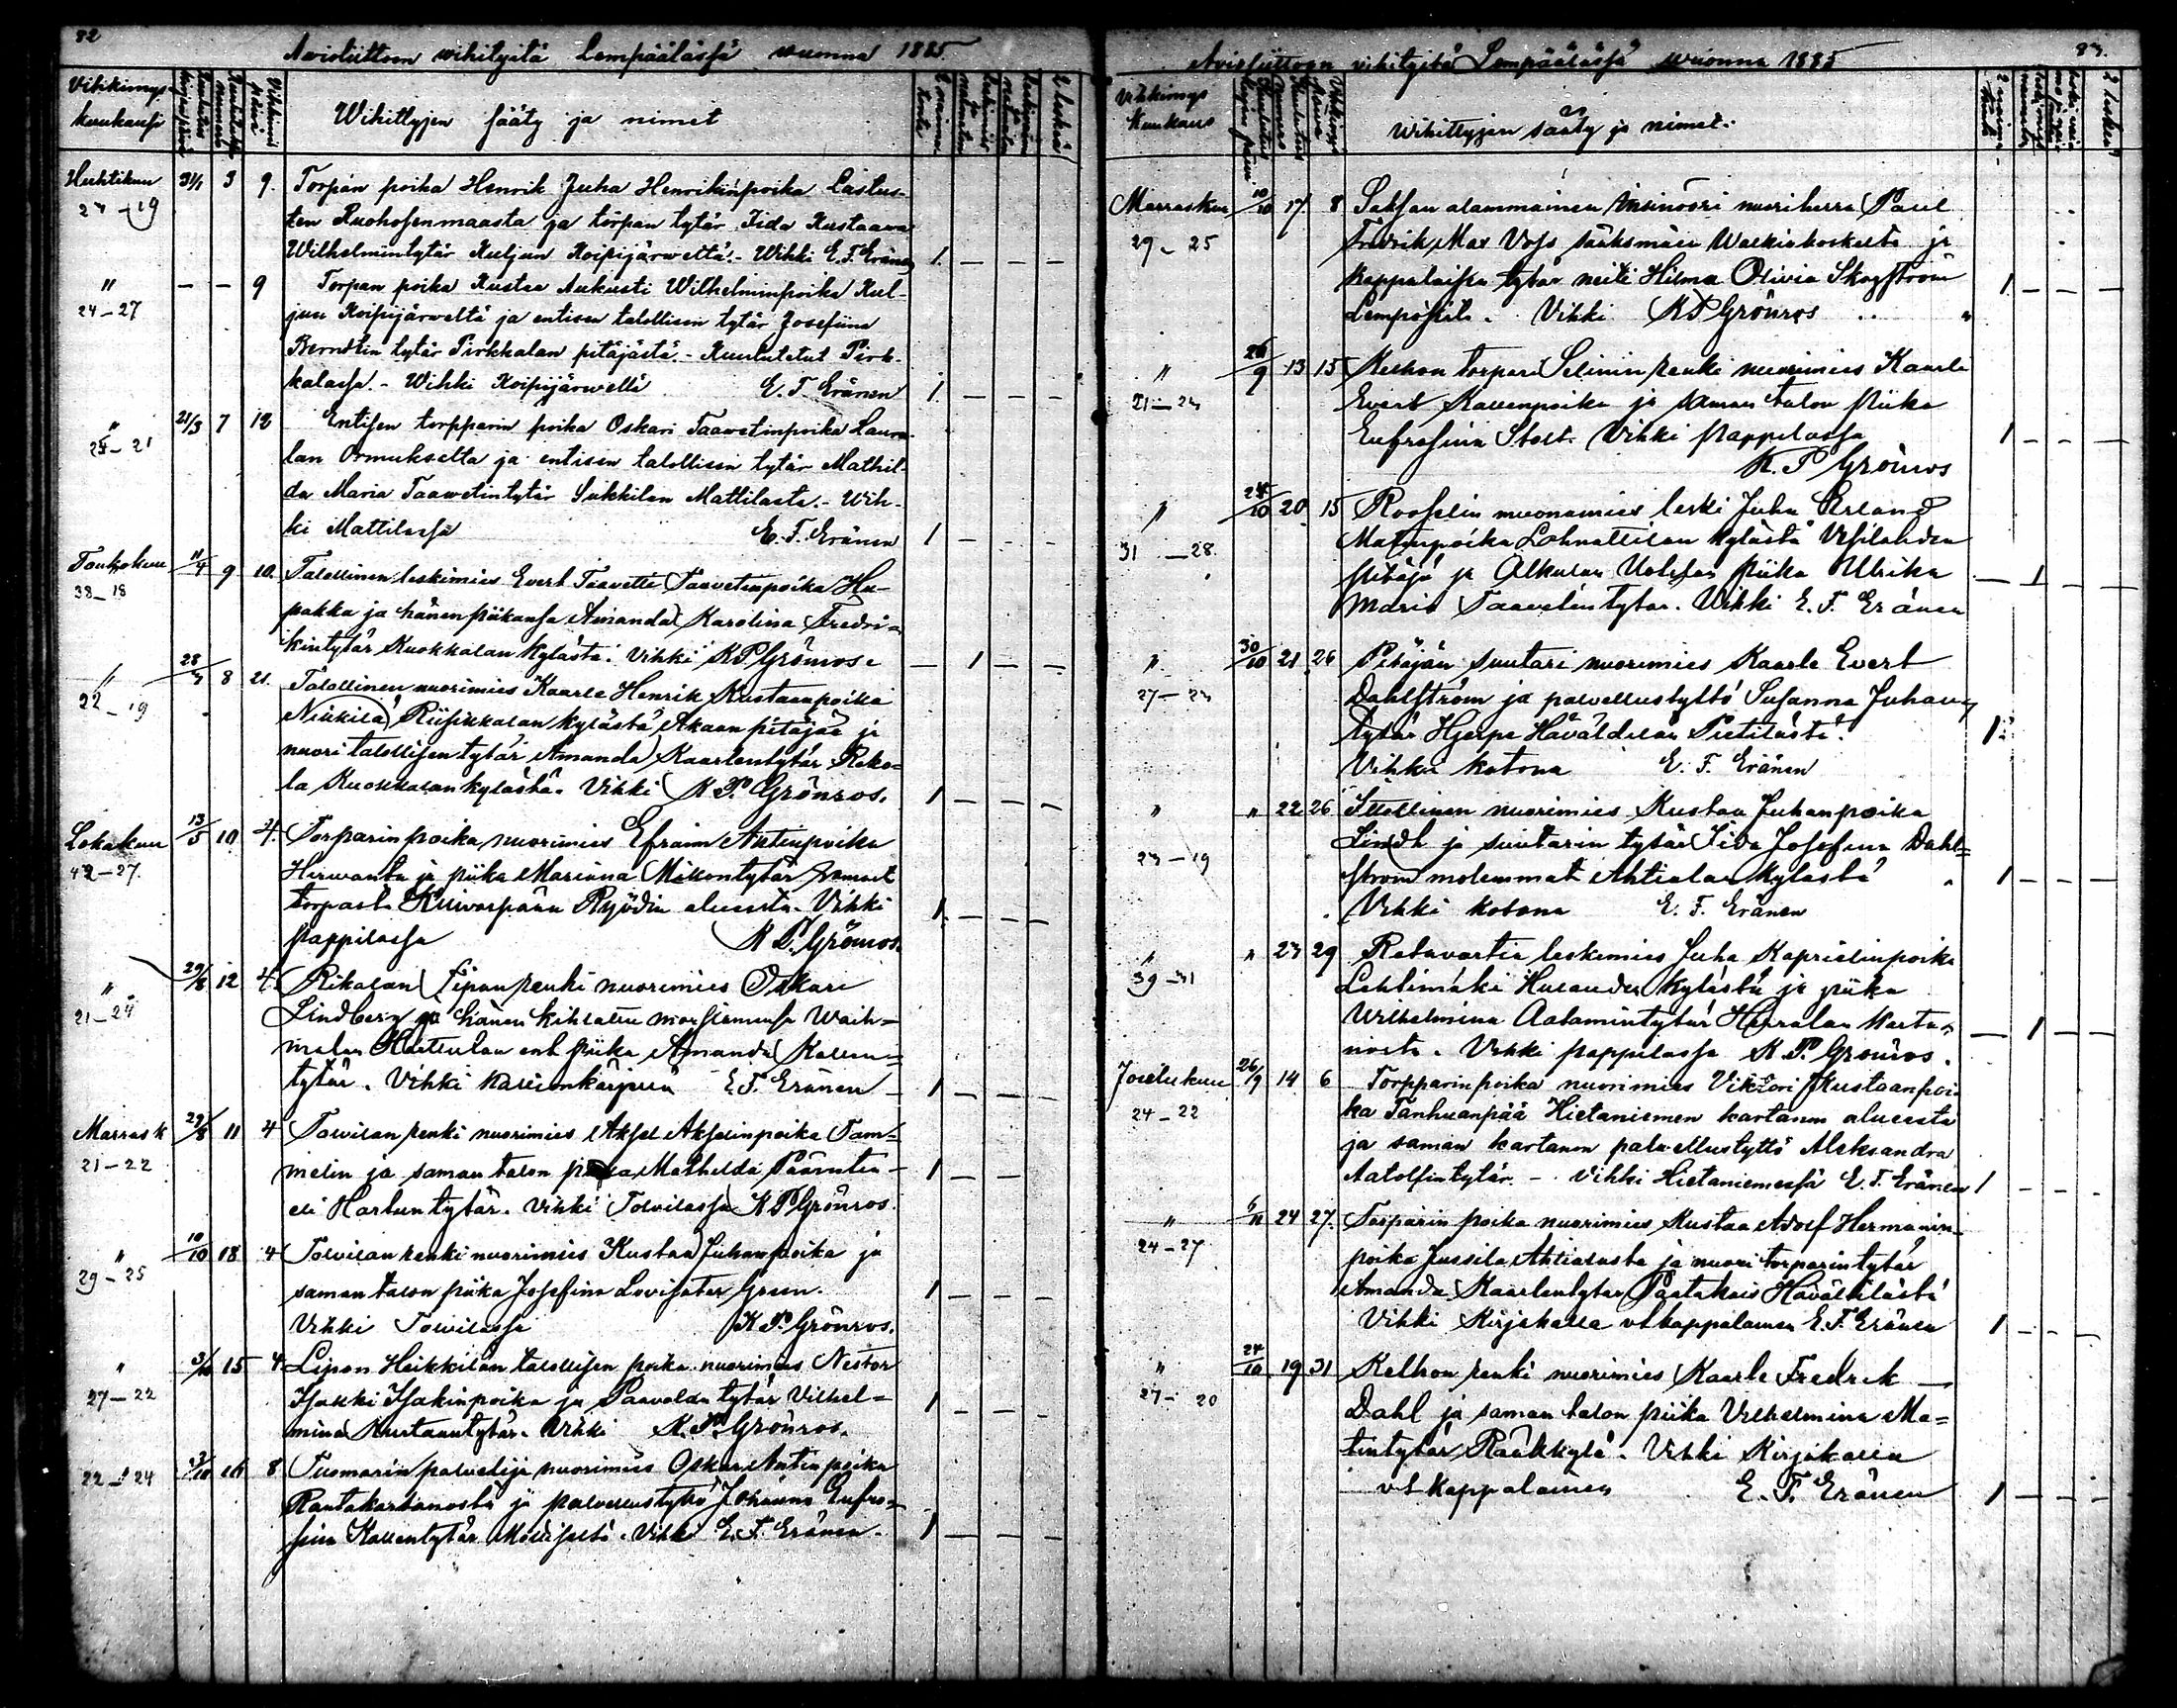 82
Avioliittoon wihityitä Lempäälässä wuonna 1885.
Vihkimys
kuukausi
Wihittyjen sääty ja nimet
Huhtikuu 31/1 3 9. Torpan poika Henrik Juha Henrikinpoika Lastus-
23-19 ten Ruohosenmaasta ja torpan tytär Iida Kustaava
Wilhelmintytär Kuljun Koipijärweltä. - Wihki E.F. Eränen 1. - - -
" - - 9 Torpan poika Kustaa Aukusti Wilhelminpoika Kul-
24-27 jun Koipijärweltä ja entisen talollisen tytär Josefiina
Berndtin tytär Pirkkalan pitäjästä. - Kuulutetut Pirk-
kalassa. - Wihki Koipijärwellä E. F. Eränen 1. - - -
" 21/3 7 12 Entisen torpparin poika Oskari Taawetinpoika Laura-
25-21 lan Ormukselta ja entisen talollisen tytär Mathil-
da Maria Taawetintytär Sukkilan Mattilasta. - Wih-
ki Mattilassa E. F. Eränen 1 - - -
Toukokuu 11/4 9 10. Talollinen leskimies Evert Taavetti Taavetinpoika Hu-
38-18 pakka ja hänen piikansa Amanda Karolina Fredri=
kintytär Kuokkalan kylästä. Vihki K P. Grönros. - 1 - -
" 28/3 8 21. Talollinen nuorimies Kaarle Henrik Kustaanpoika
22-19 Niikilä Riisikkalan kylästä Akaan pitäjää ja
nuori talollisen tytär Amanda Kaarlentytär Reko=
la Kuokkalan kylästä. Vihki K P. Grönros. 1 - - -
Lokakuu 13/5 10 4. Torparinpoika, nuorimies Efraim Antinpoika
42-27. Herwanta ja piika Mariana Mikontytär samast
torpasta Kuivaspään Ryödin aluesta. Vihki 1. - - -
pappilassa K P. Grönros.
" 29/8 12 4. Rikalan Lipon renki nuorimies Oskari
21-24 Lindberg ja hänen kihlattu morsiamensa Waih=
malan Harttulan ent piika Amanda Kallen=
tytär. Vihki E.F. Eränen - 1 - - -
Marrask 29/8 11 4 Tolvilan renki nuorimies Aksel Akselinpoika Tam=
21-22 melin ja saman talon piika Mathilda -
eli Harlintytär. Vihki Tolvilassa K P Grönros. 1 - -
" 10/10 18 4 Tolvilan renki nuorimies Kustaa Juhanpoika ja
29-25 saman talon piika Josefina Lovisater Green. 1 - - -
Vihki Tolvilassa K P. Grönros.
" 3/10 15 4. Lipon Heikkilän talollisen poika nuorimies Nestor
27-22 Isakki Isakinpoika ja Paavolan tytär Vilhel= 1 - - -
mina Kustaantytär. Vihki K. P. Grönros.
22-24 3/10 16 8 Tuomarin palvelija nuorimies Oskar Antinpoika
Rantakartanosta ja palvelustyttö Johanna Eufro=
sina Kallentytär Moisiosta. Vihki E. F. Eränen. 1 - - -
83.
Avioliittoon vihityitä Lempäälässä wuonna 1885
Vihkimys
Kuukaus
Wihittyjen sääty ja nimet.
Marraskuu 10/10 17 8 Saksan alammainen Insinööri nuoriherra Paul
29-25 Fredrik Max Voss Sääksmäen Walkiakoskelta ja
kappalaisen tytär neiti Hilma Olivia Skogström
Lempoisista. Vihki K P Grönros 1 - - -
" 26/9 13 15 Kelhon torpari Selinin renki nuorimies Kaarle
21-23 Evert Kallenpoika ja saman talon piika
Eufrosina Stolt. Vihki pappilassa 1 - - -
K. P Grönros
" 24/10 20 15 Rooselin muonamies leski Juha Erland
31-28. Matinpoika Lohnattilan kylästä Vesilahden
pitäjä ja Alkulan piika Ulrika - 1 - -
Maria Taavetintytär. Vihki E. F. Eränen
" 30/10 21 26 Pitäjän suutari nuorimies Kaarle Evert
27-23 Dahlström ja palvellustyttö Susanna Juhan
tytär Hjerpe Hävättilän Pietilästä. 1
Vihki kotona E. F. Eränen
" " 22 26 Itsellinen nuorimies Kustaa Juhanpoika
23-19 Lindh ja suutarin tytär Iida Josefina Dahl=
strom molemmat Ahtialan kylästä 1 - - -
Vihki kotona E. F. Eränen
" " 23 29 Ratavartia leskimies Juha Kaprielinpoika
39-31 Lahtimäki Hulauden kylästä ja piika
Wilhelmina Aatamintytär Herralan Karta- - 1 - -
nosta. Vihki pappilassa K. P. Grönros.
Joulukuu 26/9 14 6 Torpparinpoika nuorimies Viktori Kustaanpoi-
24-22 ka Tanhuanpää Hietaniemen kartanon aluesta
ja saman kartanon palvellustyttö Aleksandra
Aatolfintytär. - Vihki Hietaniemessä E. F. Eränen 1 - - -
" 6/11 24 27. Torparin poika nuorimies Kustaa Adolf Hermanin-
24-27 poika Jussila Ahtialasta ja nuori torparintytär
Amanda Kaarlentytär Hävättilästä
Vihki Kirjakalla vt kappalainen E. F. Eränen 1 - - -
" 24/10 19 31 Kelhon renki nuorimies Kaarle Fredrik -
27-20 Dahl ja saman talon piika Vilhelmina Ma=
tintytär Rääkkylä. Vihki Kirjakalla
vt kappalainen E. F. Eränen 1 - - -